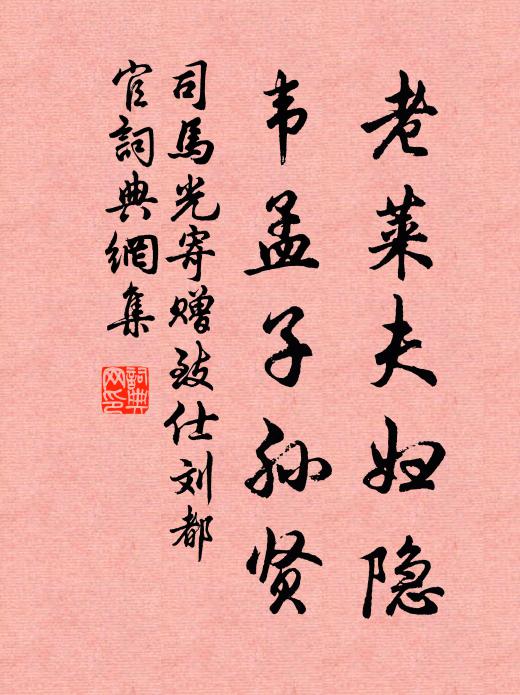 老莱夫妇隐
韦孟子孙贤
司馬光寄赠致仕刘都
官詞典網集
詞典网印